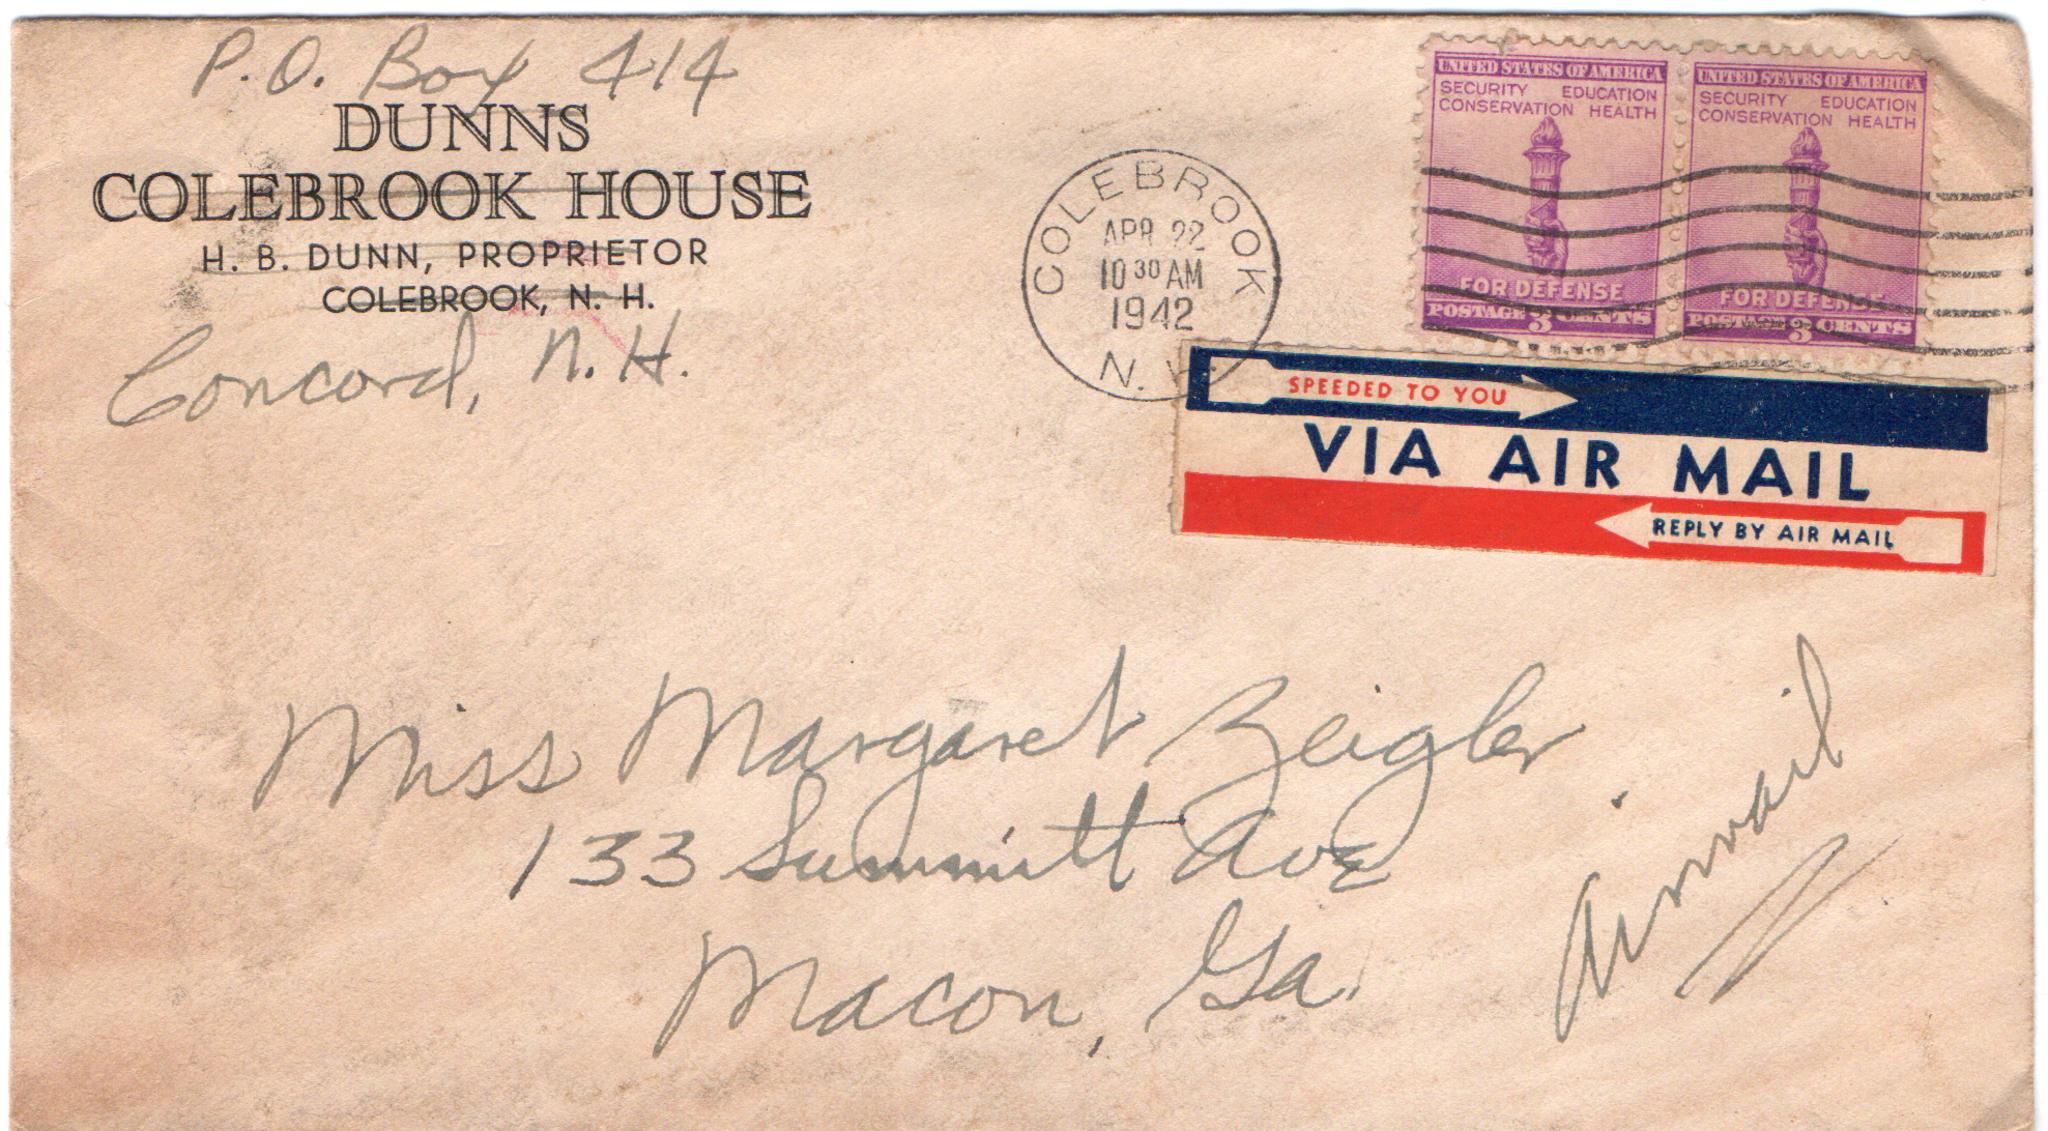 P.O. Box 414
DUNNS
COLEBROOK HOUSE
H. B. DUNN, PROPRIETOR
COLEBROOK, N. H.
Concord, N.H.
COLEBROOK
APR 22
10 30 AM
1942
N. H.
UNITED STATES OF AMERICA
SECURITY EDUCATION
CONSERVATION HEALTH
FOR DEFENSE
POSTAGE 3 CENTS
UNITED STATES OF AMERICA
SECURITY EDUCATION
CONSERVATION HEALTH
FOR DEFENSE
POSTAGE 3 CENTS
SPEEDED TO YOU
VIA AIR MAIL
REPLY BY AIR MAIL
Miss Margaret Zeigler
133 Summitt Ave
Macon, Ga.
Airmail